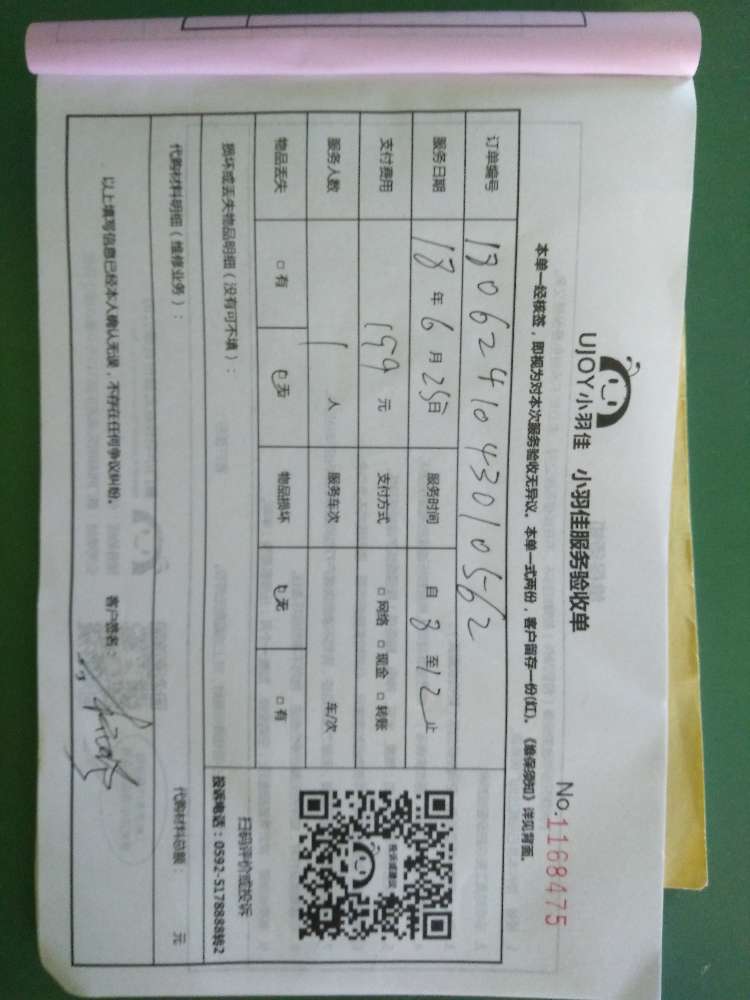 UJOY小羽佳 小羽佳服务验收单
No.1168475
本单一经核签，即视为对本次服务验收无异议。本单一式两份，客户留存一份(红)。《维保须知》详见背面。
订单编号 180624104301010562
服务日期 18年6月25日 服务时间 自8至12止
支付费用 199元 支付方式 □网络 □现金 □转账
服务人数 1人 服务车次 车/次
物品丢失 □有 □无 物品损坏 □无 □有
投诉或建议
扫码评价或投诉
投诉电话：0592-5178888转2
损坏或丢失物品明细（没有可不填）：
代购材料明细（维修业务）： 代购材料总额： 元
以上填写信息已经本人确认无误，不存在任何争议纠纷。 客户签名：